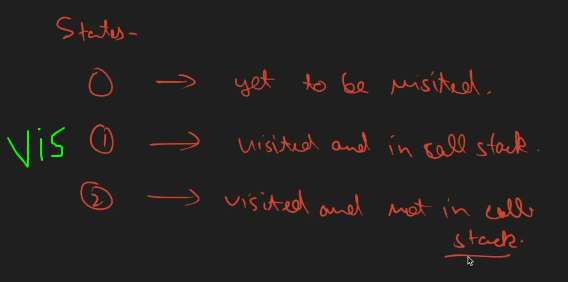 States-
0 → yet to be visited.
Vis 1 → visited and in call stack.
2 → visited and not in call
stack.